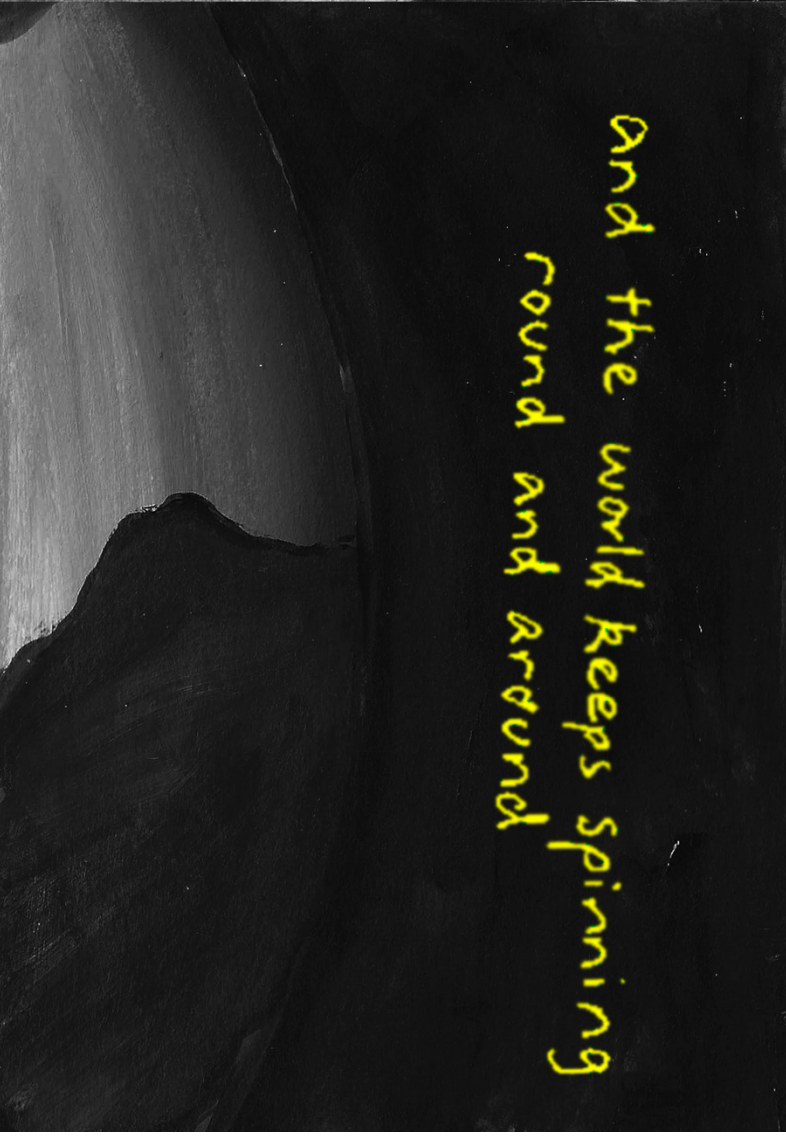 and the world keeps spinning
round and around